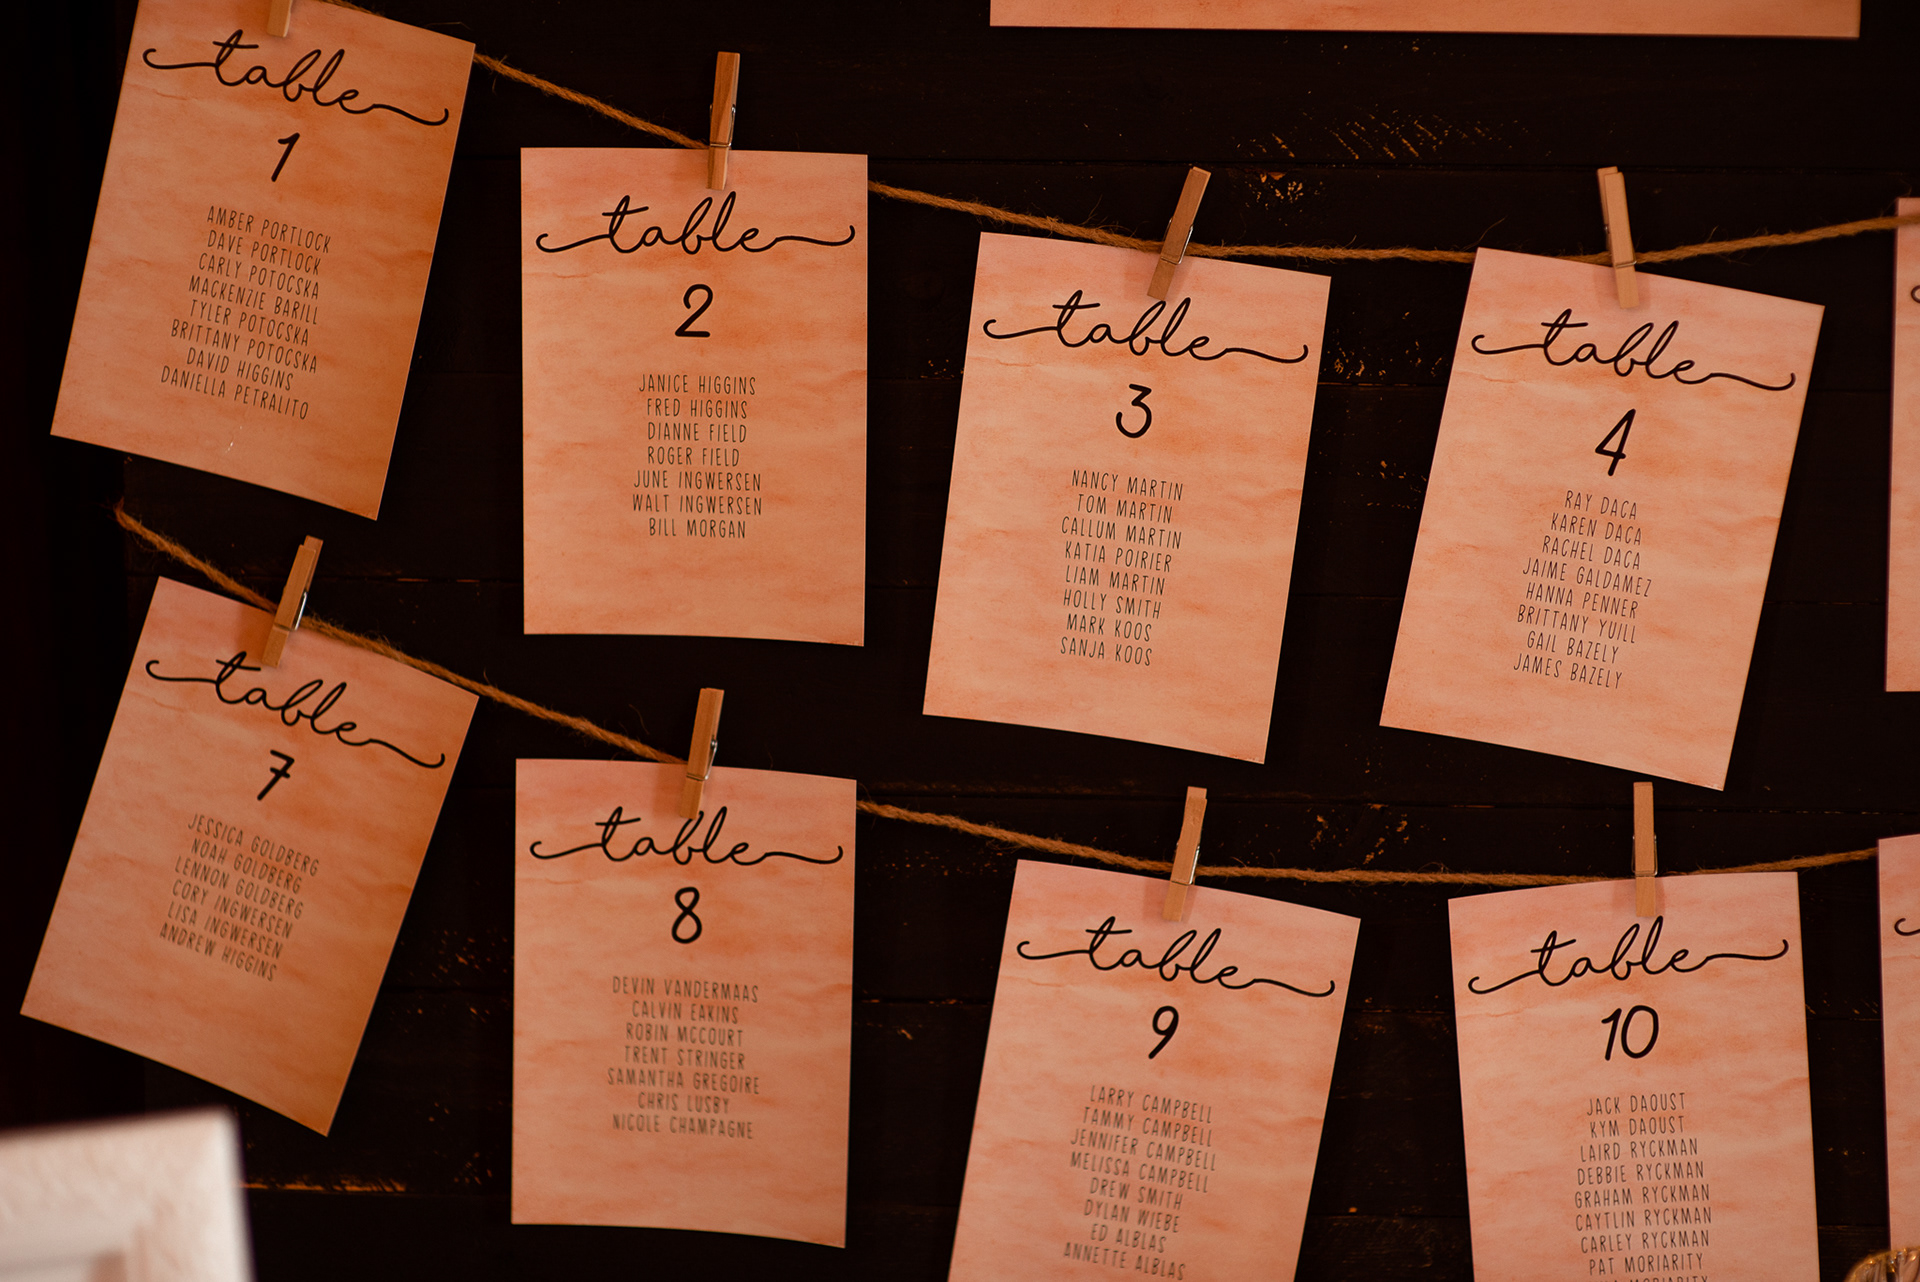 table
1
AMBER PORTLOCK
DAVE PORTLOCK
CARLY POTOCSKA
MACKENZIE BARILL
TYLER POTOCSKA
BRITTANY POTOCSKA
DAVID HIGGINS
DANIELLA PETRALITO
table
2
JANICE HIGGINS
FRED HIGGINS
DIANNE FIELD
ROGER FIELD
JUNE INGWERSEN
WALT INGWERSEN
BILL MORGAN
table
3
NANCY MARTIN
TOM MARTIN
CALLUM MARTIN
KATIA POIRIER
LIAM MARTIN
HOLLY SMITH
MARK KOOS
SANJA KOOS
table
4
RAY DACA
KAREN DACA
RACHEL DACA
JAIME GALDAMEZ
HANNA PENNER
BRITTANY YUILL
GAIL BAZELY
JAMES BAZELY
table
7
JESSICA GOLDBERG
NOAH GOLDBERG
LENNON GOLDBERG
CORY INGWERSEN
LISA INGWERSEN
ANDREW HIGGINS
table
8
DEVIN VANDERMAAS
CALVIN EAKINS
ROBIN MCCOURT
TRENT STRINGER
SAMANTHA GREGOIRE
CHRIS LUSBY
NICOLE CHAMPAGNE
table
9
LARRY CAMPBELL
TAMMY CAMPBELL
JENNIFER CAMPBELL
MELISSA CAMPBELL
DREW SMITH
DYLAN WIEBE
ED ALBLAS
ANNETTE ALBLAS
table
10
JACK DAOUST
KYM DAOUST
LAIRD RYCKMAN
DEBBIE RYCKMAN
GRAHAM RYCKMAN
CAYTLIN RYCKMAN
CARLEY RYCKMAN
PAT MORIARITY
MORIARITY